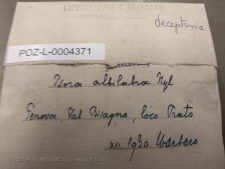 deceptoria
POZ-L-0004371
Psora albilabra Nyl
Genova, Val Bisagno, loco Prato
XII 1930 Barbaro